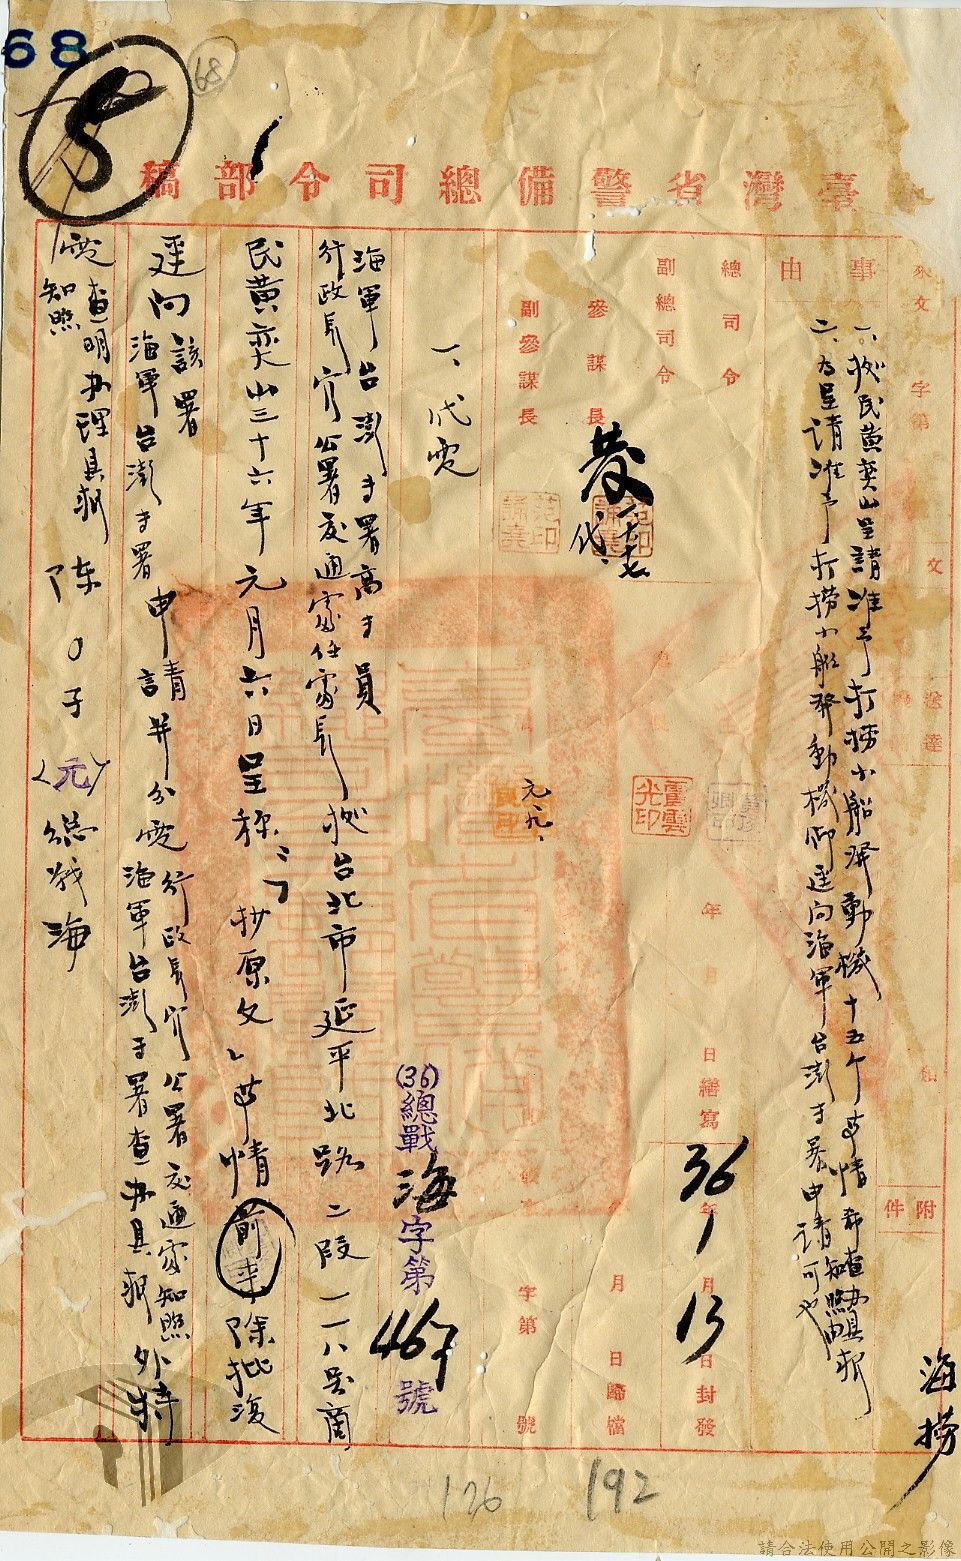 68
68
5
臺灣省警備總司令部稿
來文 字第
文
送達
附件
海撈
事由
一、據民黃奕山呈請准予打撈小船發動機十五個等情希查辦具報
知照由
二、為呈請准予打撈小船發動機仰逕向海軍台澎專署申請可也
總司令
副總司令
參謀長
副參謀長
代
元九
年 月 日繕寫
36年1月13日封發
年 月 日歸檔
字第 號
(36)總戰海字第467號
一、代電
海軍台澎專署高專員
行政長官公署交通處任處長據台北市延平北路二段一一八號商
民黃奕山三十六年元月六日呈稱:「抄原文」等情前來除批復
逕向該署
海軍台澎專署申請並分電行政長官公署交通處知照
海軍台澎專署查辦具報外特
電查明辦理具報
知照
陳○子(元)總戰海
126
192
請合法使用公開之影像